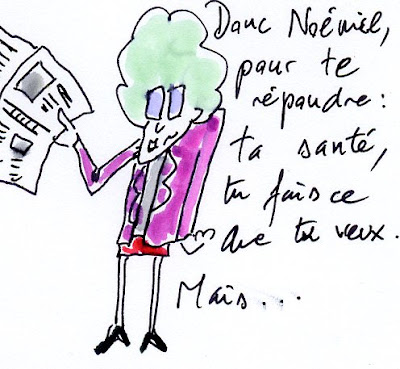 Donc Noémiel,
pour te
répondre :
ta santé,
tu fais ce
que tu veux.
Mais...